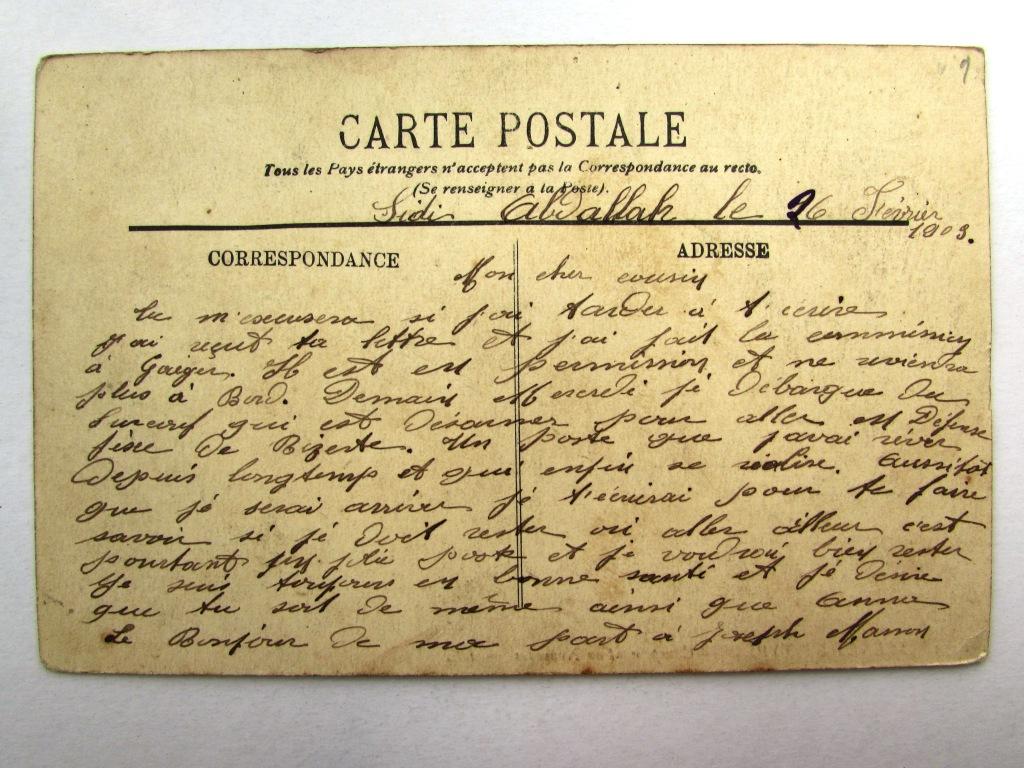 CARTE POSTALE
Tous les Pays étrangers n'acceptent pas la Correspondance au recto.
(Se renseigner à la Poste).
Sidi Abdallah le 26 Février
1903.
CORRESPONDANCE
ADRESSE
Mon cher cousin
Tu m'excusera si j'ai tarder à t'écrire
J'ai reçut ta lettre et j'ai fait la commission
à Gaiger. Il est en permission et ne reviendra
plus à Bord. Demain Mercredi je débarque du
qui est désarmer pour aller en Défense
fixe de Bizerte. Un poste que j'avai rêver
depuis longtemp et qui enfin se réalise. Aussitôt
que je serai arriver je t'écrirai pour te faire
savoir si je doit rester ou aller ailleur c'est
pourtant un jolie poste et je voudrai bien rester
Je suis toujours en bonne santé et je désire
que tu soit de même ainsi que Anna
Le Bonjour de ma part à Joseph Marron